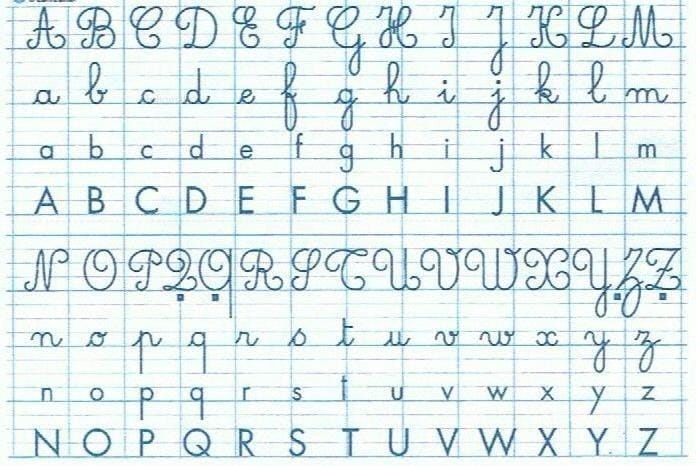 A B C D E F G H I J K L M
a b c d e f g h i j k l m
a b c d e f g h i j k l m
A B C D E F G H I J K L M
N O P Q Q R S T U V W X Y Z Z
n o p q r s t u v w x y z
n o p q r s t u v w x y z
N O P Q R S T U V W X Y Z